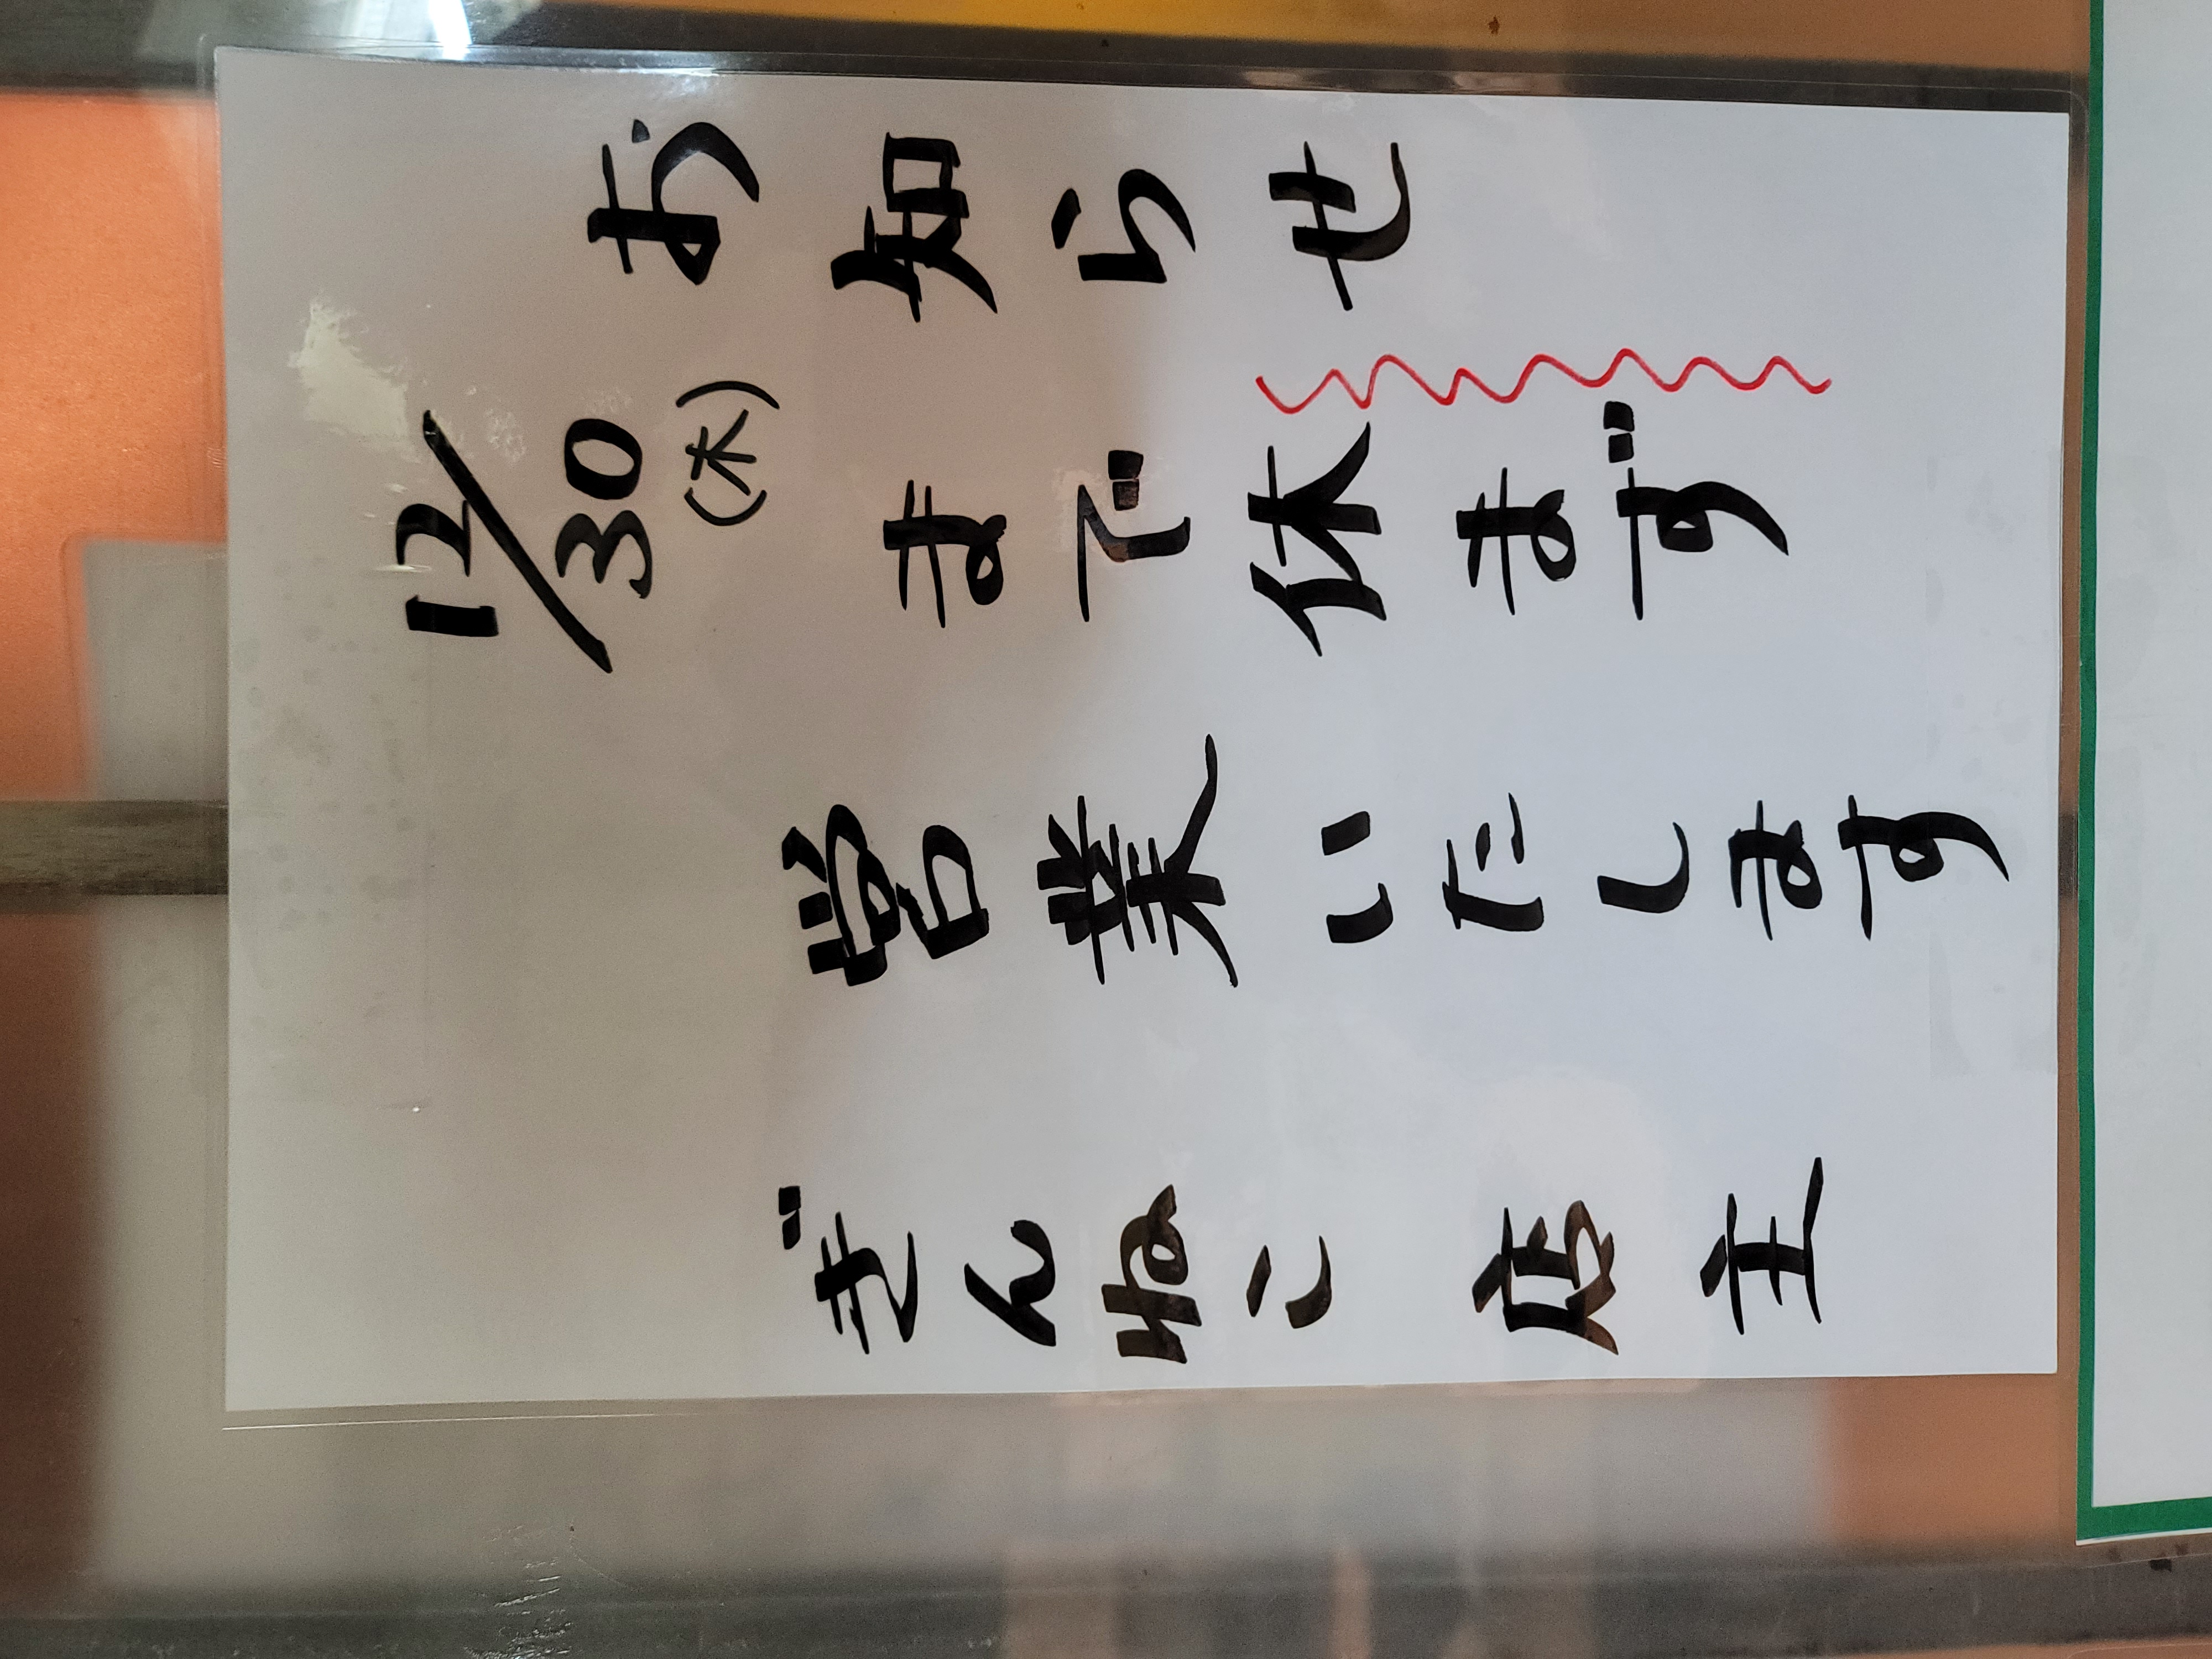 お知らせ
12/30(木)まで休まず
営業いたします
ぎんねこ 店主